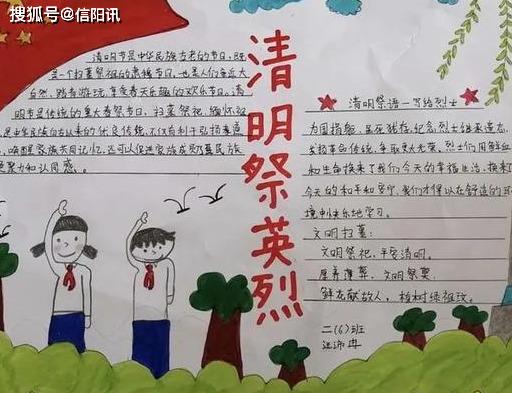 搜狐号@信阳讯
清明节是中华民族古老的节日，既
是一个扫墓祭祖的肃穆节日，也是人们亲近大
自然、踏青游玩、享受春天乐趣的欢乐节日。清
明节是传统的重大春祭节日，扫墓祭祀、缅怀祖
是中华民族自古以来的优良传统，不仅有利于弘扬孝道
唤醒家族共同记忆，还可促进家族成员乃至民族
聚力和认同感。
清明祭英烈
清明祭语一写给烈士
为国捐躯，虽死犹存，纪念烈士继承遗志，
发扬革命传统，争取更大光荣，烈士们用鲜血
和生命换来了我们今天的幸福生活，换来了
今天的和平和安宁，我们才得以在舒适的环
境中快乐地学习。
文明扫墓：
文明祭祀，平安清明。
厚养薄葬，文明祭奠
鲜花献故人，植树绿祖坟。
二(6)班